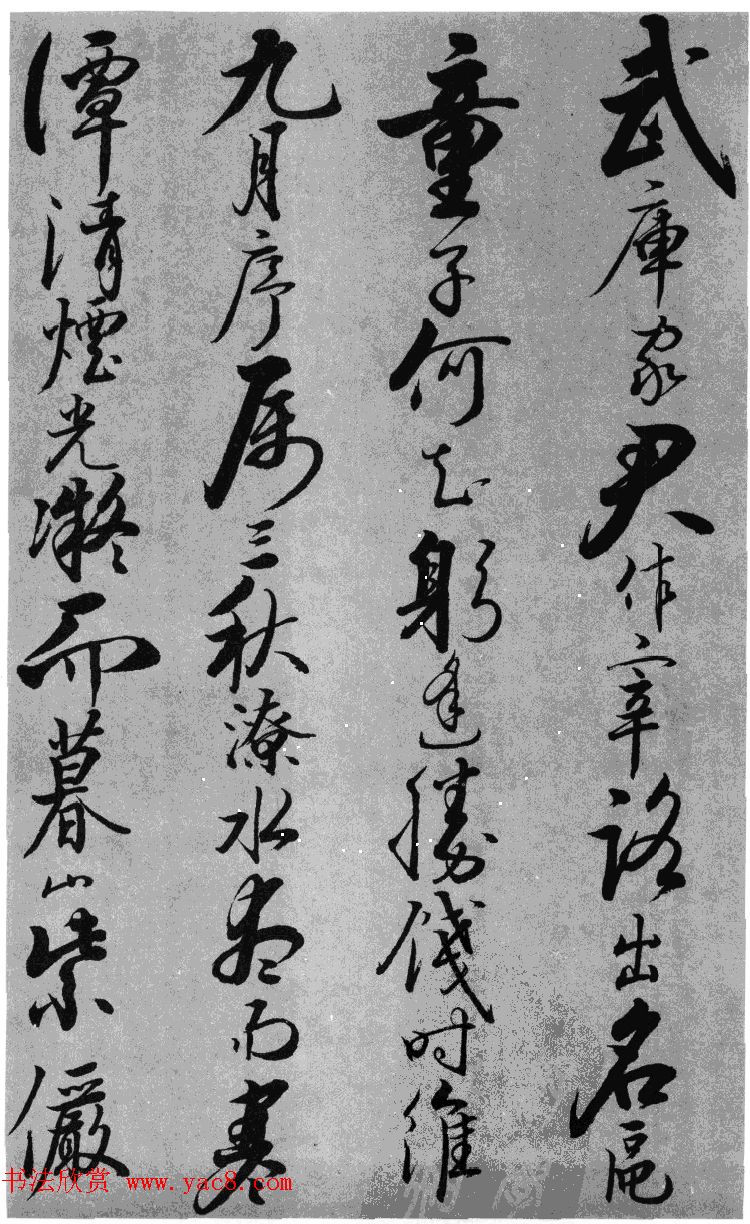 武庫家尹作宰路出名區
童子何知躬逢勝餞时維
九月序属三秋潦水尽而寒
潭清煙光凝而暮山紫儼
书法欣赏 www.yac8.com